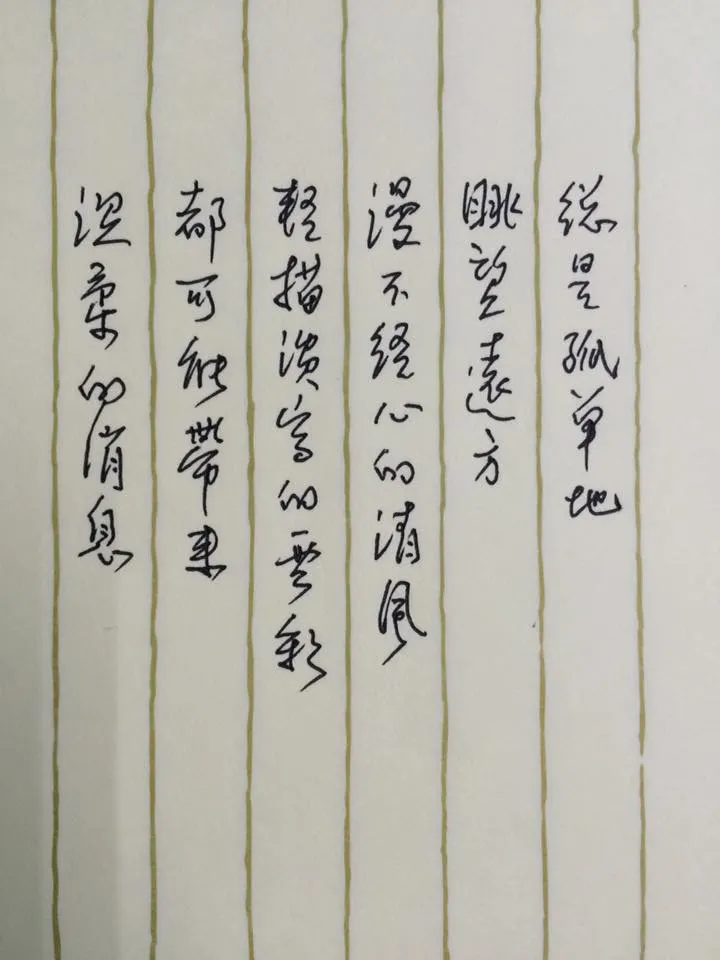 總是孤單地
眺望遠方
漫不經心的清風
輕描淡寫的雲彩
都可能帶來
溫柔的消息